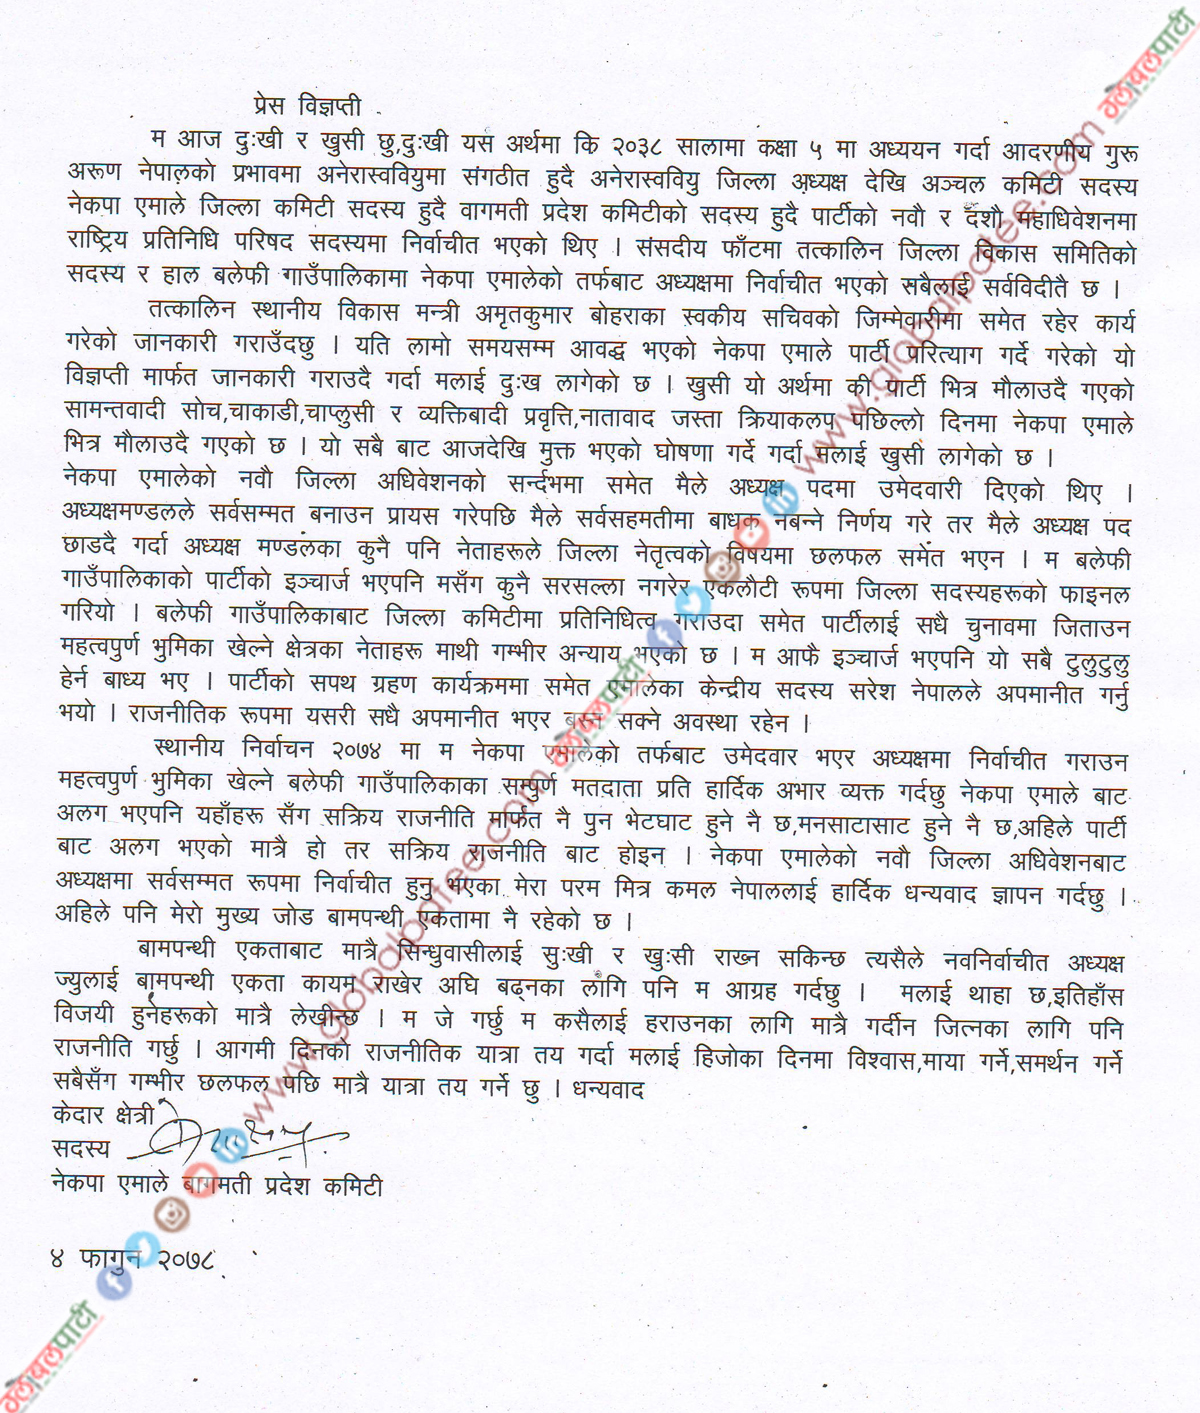 प्रेस विज्ञप्ती
म आज दुःखी र खुसी छु,दुःखी यस अर्थमा कि २०३८ सालामा कक्षा ५ मा अध्ययन गर्दा आदरणीय गुरू
अरूण नेपालको प्रभावमा अनेरास्ववियुमा संगठीत हुदै अनेरास्ववियु जिल्ला अध्यक्ष देखि अञ्चल कमिटी सदस्य
नेकपा एमाले जिल्ला कमिटी सदस्य हुदै वागमती प्रदेश कमिटीको सदस्य हुदै पार्टीको नवौ र दशौ महाधिवेशनमा
राष्ट्रिय प्रतिनिधि परिषद सदस्यमा निर्वाचीत भएको थिए । संसदीय फाँटमा तत्कालिन जिल्ला विकास समितिको
सदस्य र हाल बलेफी गाउँपालिकामा नेकपा एमालेको तर्फबाट अध्यक्षमा निर्वाचीत भएको सबैलाई सर्वविदीतै छ ।
तत्कालिन स्थानीय विकास मन्त्री अमृतकुमार बोहराका स्वकीय सचिवको जिम्मेवारीमा समेत रहेर कार्य
गरेको जानकारी गराउँदछु । यति लामो समयसम्म आवद्ध भएको नेकपा एमाले पार्टी परित्याग गर्दे गरेको यो
विज्ञप्ती मार्फत जानकारी गराउदै गर्दा मलाई दुःख लागेको छ । खुसी यो अर्थमा की पार्टी भित्र मौलाउदै गएको
सामन्तवादी सोच,चाकाडी,चाप्लुसी र व्यक्तिबादी प्रवृत्ति,नातावाद जस्ता क्रियाकलप पछिल्लो दिनमा नेकपा एमाले
भित्र मौलाउदै गएको छ । यो सबै बाट आजदेखि मुक्त भएको घोषणा गर्दे गर्दा मलाई खुसी लागेको छ ।
नेकपा एमालेको नवौ जिल्ला अधिवेशनको सर्न्दभमा समेत मैले अध्यक्ष पदमा उमेदवारी दिएको थिए ।
अध्यक्षमण्डलले सर्वसम्मत बनाउन प्रायस गरेपछि मैले सर्वसहमतीमा बाधक नबन्ने निर्णय गरे तर मैले अध्यक्ष पद
छाडदै गर्दा अध्यक्ष मण्डलका कुनै पनि नेताहरूले जिल्ला नेतृत्वको विषयमा छलफल समेत भएन । म बलेफी
गाउँपालिकाको पार्टीको इञ्चार्ज भएपनि मसँग कुनै सरसल्ला नगरेर एकलौटी रूपमा जिल्ला सदस्यहरूको फाइनल
गरियो । बलेफी गाउँपालिकाबाट जिल्ला कमिटीमा प्रतिनिधित्व गराउदा समेत पार्टीलाई सधै चुनावमा जिताउन
महत्वपुर्ण भुमिका खेल्ने क्षेत्रका नेताहरू माथी गम्भीर अन्याय भएको छ । म आफै इञ्चार्ज भएपनि यो सबै टुलुटुलु
हेर्न बाध्य भए । पार्टीको सपथ ग्रहण कार्यक्रममा समेत एमालेका केन्द्रीय सदस्य सरेश नेपालले अपमानीत गर्नु
भयो । राजनीतिक रूपमा यसरी सधै अपमानीत भएर बस्न सक्ने अवस्था रहेन ।
स्थानीय निर्वाचन २०७४ मा म नेकपा एमालेको तर्फबाट उमेदवार भएर अध्यक्षमा निर्वाचीत गराउन
महत्वपुर्ण भुमिका खेल्ने बलेफी गाउँपालिकाका सम्पुर्ण मतदाता प्रति हार्दिक अभार व्यक्त गर्दछु नेकपा एमाले बाट
अलग भएपनि यहाँहरू सँग सक्रिय राजनीति मार्फत नै पुन भेटघाट हुने नै छ,मनसाटासाट हुने नै छ,अहिले पार्टी
बाट अलग भएको मात्रै हो तर सक्रिय राजनीति बाट होइन । नेकपा एमालेको नवौ जिल्ला अधिवेशनबाट
अध्यक्षमा सर्वसम्मत रूपमा निर्वाचीत हुनु भएका मेरा परम मित्र कमल नेपाललाई हार्दिक धन्यवाद ज्ञापन गर्दछु ।
अहिले पनि मेरो मुख्य जोड बामपन्थी एकतामा नै रहेको छ ।
बामपन्थी एकताबाट मात्रै सिन्धुवासीलाई सुःखी र खुःसी राख्न सकिन्छ त्यसैले नवनिर्वाचीत अध्यक्ष
ज्युलाई बामपन्थी एकता कायम राखेर अघि बढ्नका लागि पनि म आग्रह गर्दछु । मलाई थाहा छ,इतिहाँस
विजयी हुनेहरूको मात्रै लेखीन्छ । म जे गर्छु म कसैलाई हराउनका लागि मात्रै गर्दीन जित्नका लागि पनि
राजनीति गर्छु । आगमी दिनको राजनीतिक यात्रा तय गर्दा मलाई हिजोका दिनमा विश्वास,माया गर्ने,समर्थन गर्ने
सबैसँग गम्भीर छलफल पछि मात्रै यात्रा तय गर्ने छु । धन्यवाद
केदार क्षेत्री
सदस्य
नेकपा एमाले बागमती प्रदेश कमिटी
४ फागुन २०७८
ग्लोबलपाटी
www.globalpatee.com
ग्लोबलपाटी
www.globalpatee.com
ग्लोबलपाटी